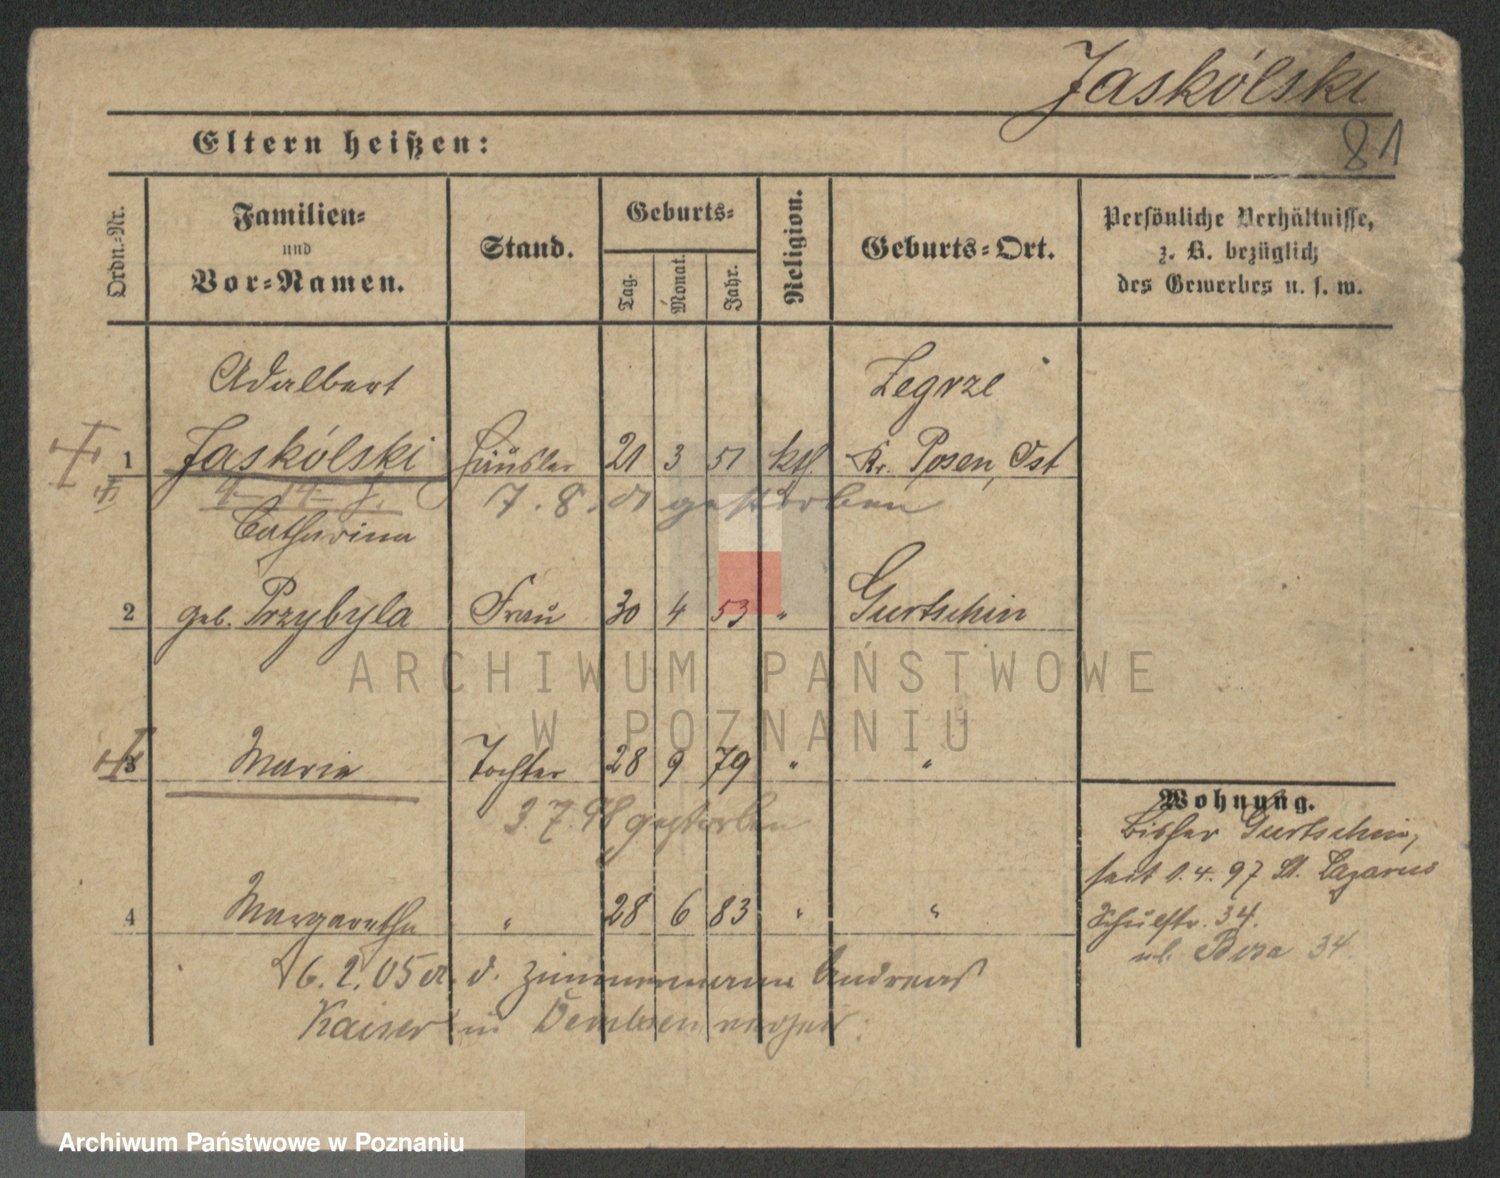 Jaskólski
81
Eltern heißen:
Ordn.-Nr.
Familien-
und
Vor-Namen.
Stand.
Geburts-
Tag.
Monat.
Jahr.
Religion.
Geburts-Ort.
Persönliche Verhältnisse,
z. B. bezüglich
des Gewerbes u. s. w.
Adalbert Zegrze
1 Jaskólski Häusler 21 3 51 kth. Kr. Posen, Ost
7. 8. gestorben
Catharina
2 geb. Przybyla Frau 30 4 53 " Gurtschin
3 Marie Tochter 28 9 79 " "
3. 7. 98 gestorben
Wohnung.
bisher Gurtschin,
seit 1. 4. 97 St. Lazarus
4 Margarethe " 28 6 83 " "
Schulstr. 34.
Rosa 34.
6. 2. 05 d. Zimmermann Andreas
Kaiser in Dembsen
ARCHIWUM PAŃSTWOWE
W POZNANIU
Archiwum Państwowe w Poznaniu